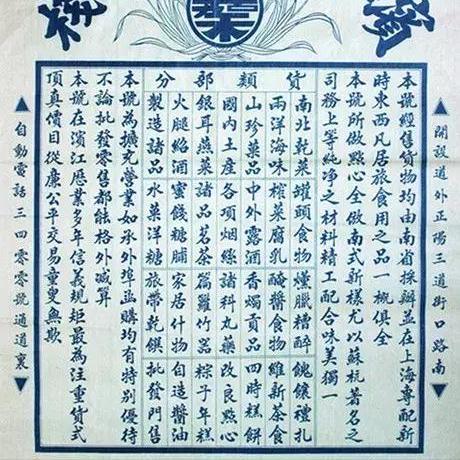 ▲開設道外正陽三道街口路南▲
本號經售貨物均由南省採辦並在上海專配新
時東西凡居旅食用之品一概俱全
本號所做點心全做南式新樣尤以蘇杭著名之
司務上等純淨之材料精工配合味美獨一
貨類部分
南北乾菜 罐頭食物 燻臘糟醉 餽儀禮扎
兩洋海味 榨菜腐乳 醃醬食物 維新茶食
山珍菓品 中外露酒 香燭貢品 四時糕餅
國內土產 各項烟絲 諸科丸藥 改良點心
銀耳燕菜 諸品茗茶 籮竹器 粽子年糕
火腿紹酒 蜜餞糖脯 家居什物 自造醬油
製造諸品 水菓洋糖 旅帶乾餱 批發門售
本號為擴充營業如承外埠函購均有特別優待
不論批發零售都能格外減算
本號在濱江歷業多年信義規矩最為注重貨式
頂真價目從廉公平交易童叟無欺
▲自動電話三四零零號通道裏▲